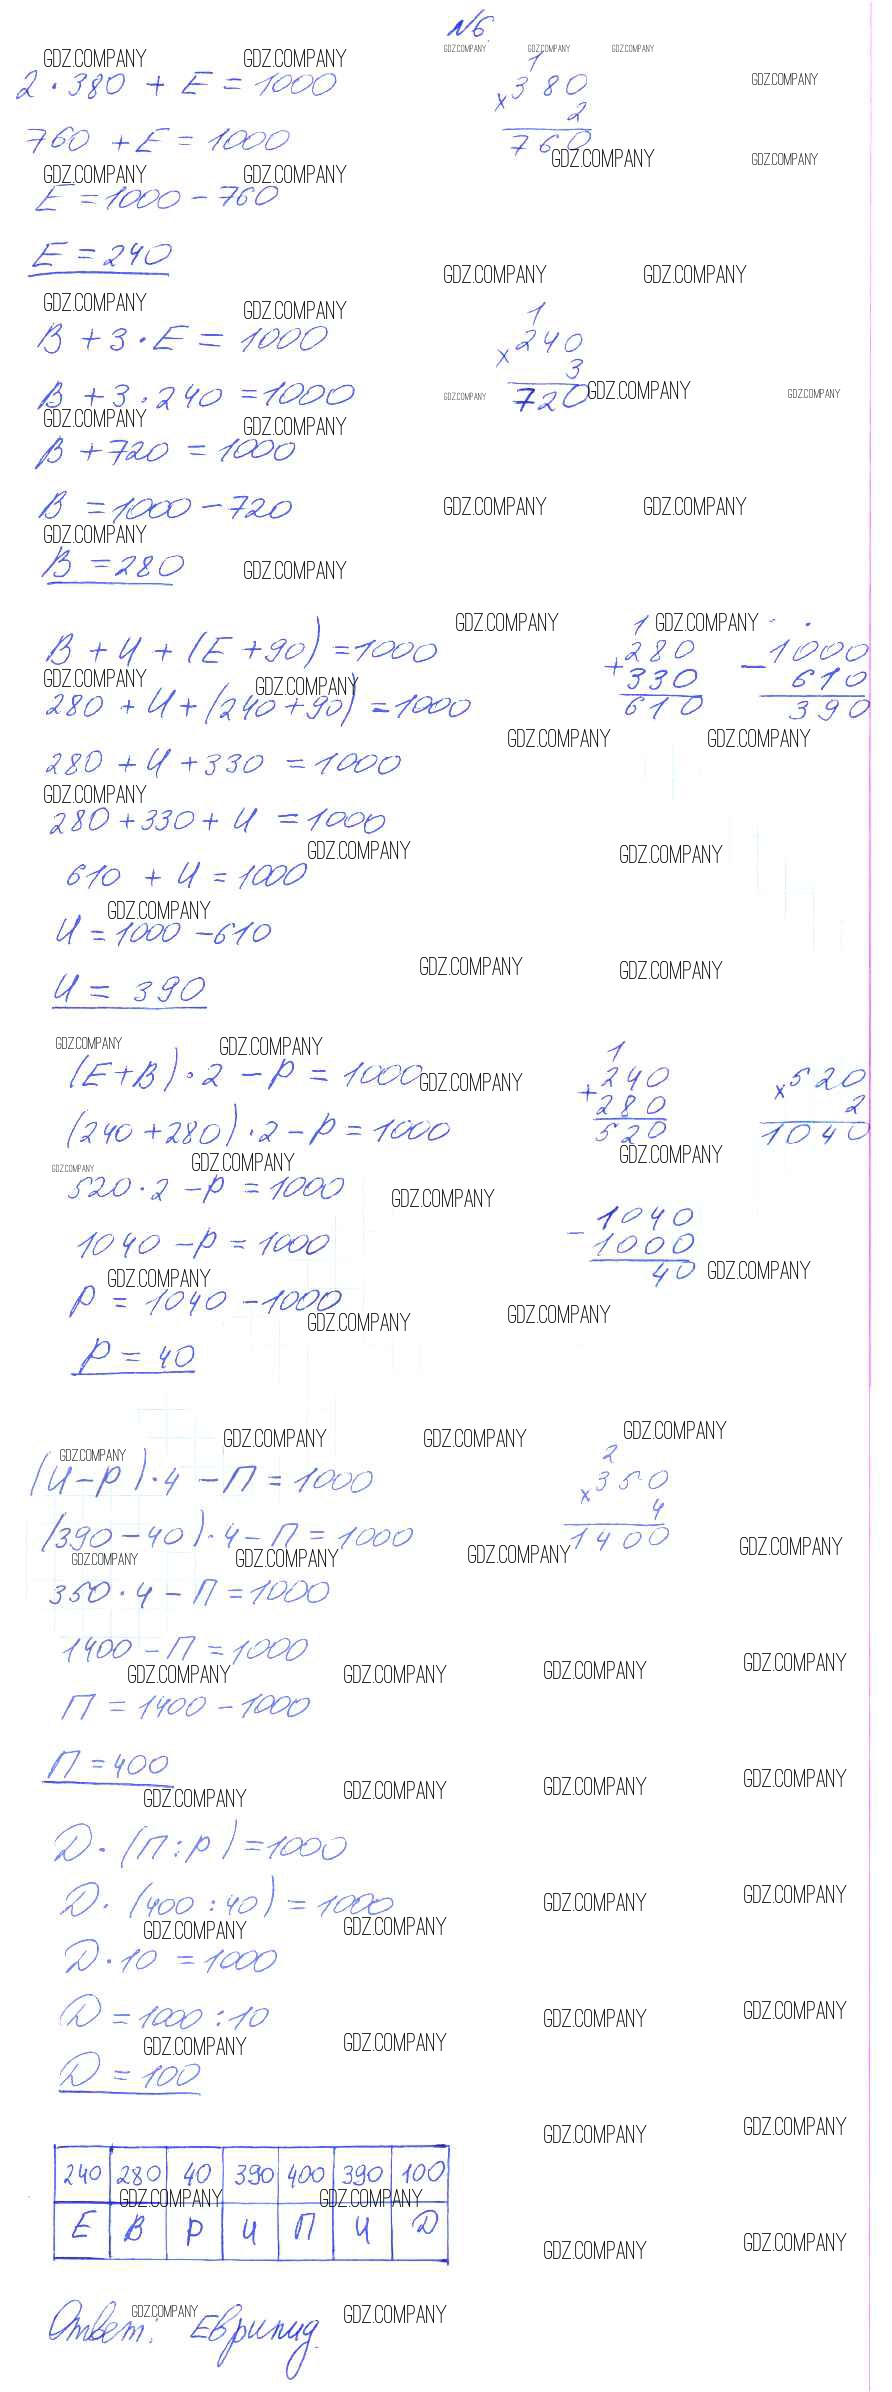 №6.
2 · 380 + Е = 1000
1
× 380
2
760
760 + Е = 1000
Е = 1000 - 760
Е = 240
В + 3 · Е = 1000
1
× 240
3
720
В + 3 · 240 = 1000
В + 720 = 1000
В = 1000 - 720
В = 280
В + И + (Е + 90) = 1000
1
+ 280
330
610
- 1000
610
390
280 + И + (240 + 90) = 1000
280 + И + 330 = 1000
280 + 330 + И = 1000
610 + И = 1000
И = 1000 - 610
И = 390
(Е + В) · 2 - Р = 1000
1
+ 240
280
520
× 520
2
1040
(240 + 280) · 2 - Р = 1000
520 · 2 - Р = 1000
1040 - Р = 1000
- 1040
1000
40
Р = 1040 - 1000
Р = 40
(И - Р) · 4 - П = 1000
2
× 350
4
1400
(390 - 40) · 4 - П = 1000
350 · 4 - П = 1000
1400 - П = 1000
П = 1400 - 1000
П = 400
Д · (П : Р) = 1000
Д · (400 : 40) = 1000
Д · 10 = 1000
Д = 1000 : 10
Д = 100
240 280 40 390 400 390 100
Е В Р И П И Д
Ответ: Еврипид.
GDZ.COMPANY